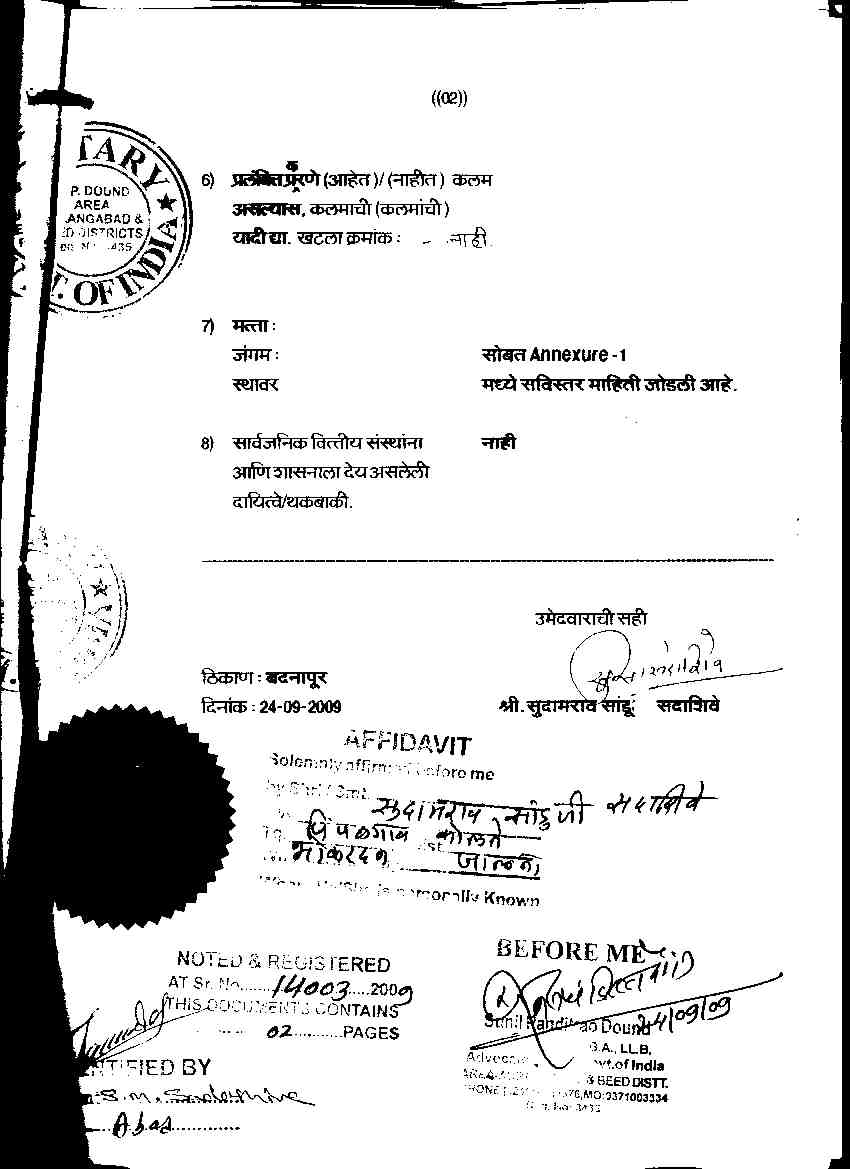 ((02))
TARY
P. DOUND
AREA
ANGABAD &
DISTRICTS
T. OF INDIA
6) प्रलंबित प्रकरणे (आहेत)/ (नाहीत) कलम
असल्यास, कलमाची (कलमांची)
यादी द्या. खटला क्रमांक : - नाही.
7) मत्ता :
जंगम : सोबत Annexure -1
स्थावर मध्ये सविस्तर माहिती जोडली आहे.
8) सार्वजनिक वित्तीय संस्थांना नाही
आणि शासनाला देय असलेली
दायित्वे/थकबाकी.
उमेदवाराची सही
ठिकाण : बदनापूर
दिनांक : 24-09-2009 श्री. सुदामराव सांडू सदाशिवे
AFFIDAVIT
Solemnly affirmed before me
by Shri / Smt.
सुदामराव सांडुजी सदाशिवे
पिंपळगाव कोलते
भोकरदन जालना
is personally Known
NOTED & REGISTERED
AT Sr. No. 14003 2009
THIS DOCUMENTS CONTAINS
02 PAGES
IDENTIFIED BY
S.M.
Abad
BEFORE ME
24/09/09
Sunil Panditrao Dound
B.A., LL.B.
Advocate Govt. of India
& BEED DISTT.
MO:9371003334